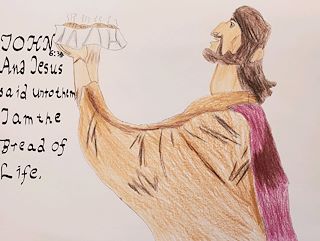 JOHN
6:35
And Jesus
said unto them
I am the
Bread of
Life.